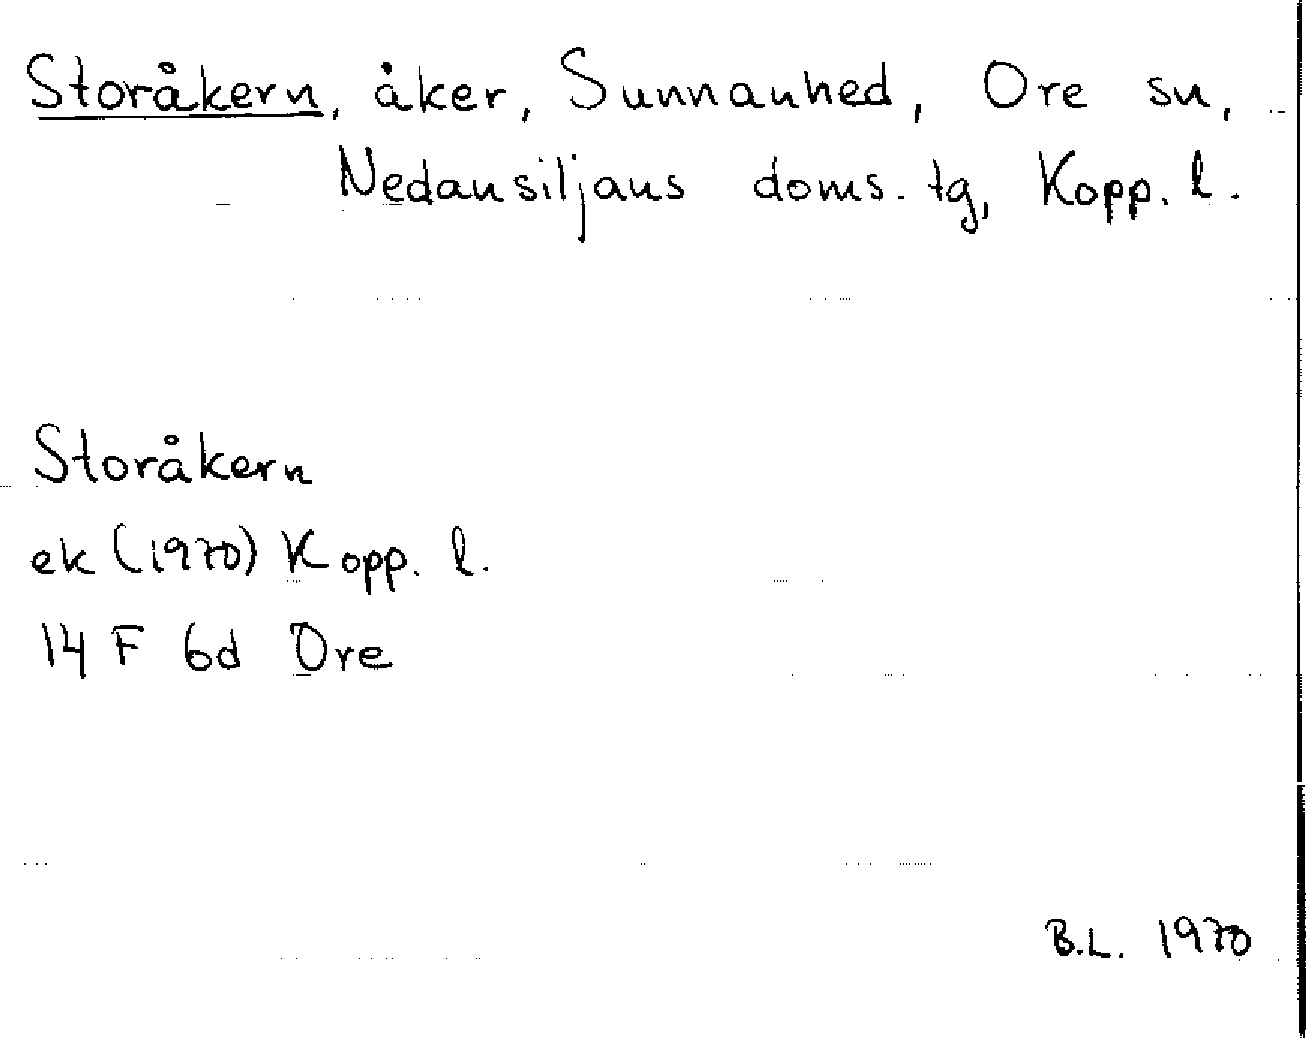 Storåkern, åker, Sunnanhed, Ore sn,
Nedansiljans doms. tg, Kopp. l.
Storåkern
ek (1970) Kopp. l.
14 F 6d Ore
B.L. 1970